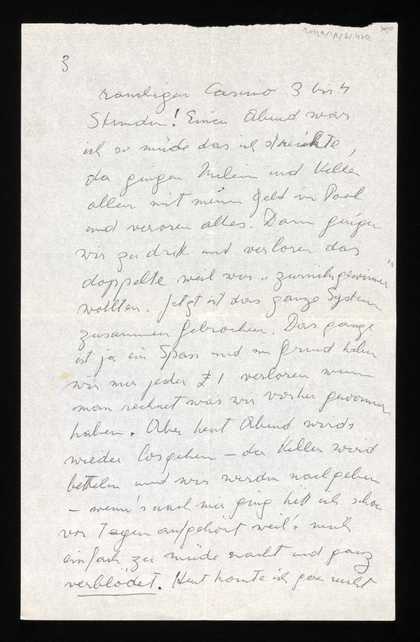 3
rauchigen Casino 3 bis 4
Stunden! Einen Abend war
ich so müde das ich streikte,
da gingen und Keller
allein mit meinem Geld in Pool
und verloren alles. Dann gingen
wir zu dritt und verloren das
doppelte weil wir „zurückgewinnen"
wollten. Jetzt ist das ganze System
zusammen gebrochen. Das ganze
ist ja ein Spass und im Grund haben
wir nur jeder £ 1 verloren wenn
man rechnet was wir vorher gewonnen
haben. Aber heut Abend wirds
wieder losgehen – der Keller wird
betteln und wir werden nachgeben
– wenn's nach mir ging hätt ich schon
vor Tagen aufgehört weil's mich
einfach zu müde macht und ganz
verblödet. Heut konnte ich gar nicht